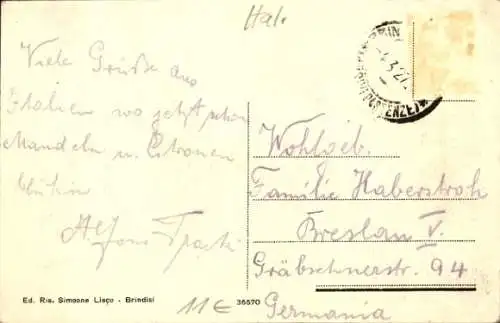 Ital.
Viele Grüße aus
Italien wo jetzt schon
Mandeln u. Citronen
blühen
Alfons
Wohlgeb.
Familie Haberstroh
Breslau V.
Gräbschnerstr. 94
Germania
Ed. Ris. Simeone Lisco - Brindisi
11€
36570